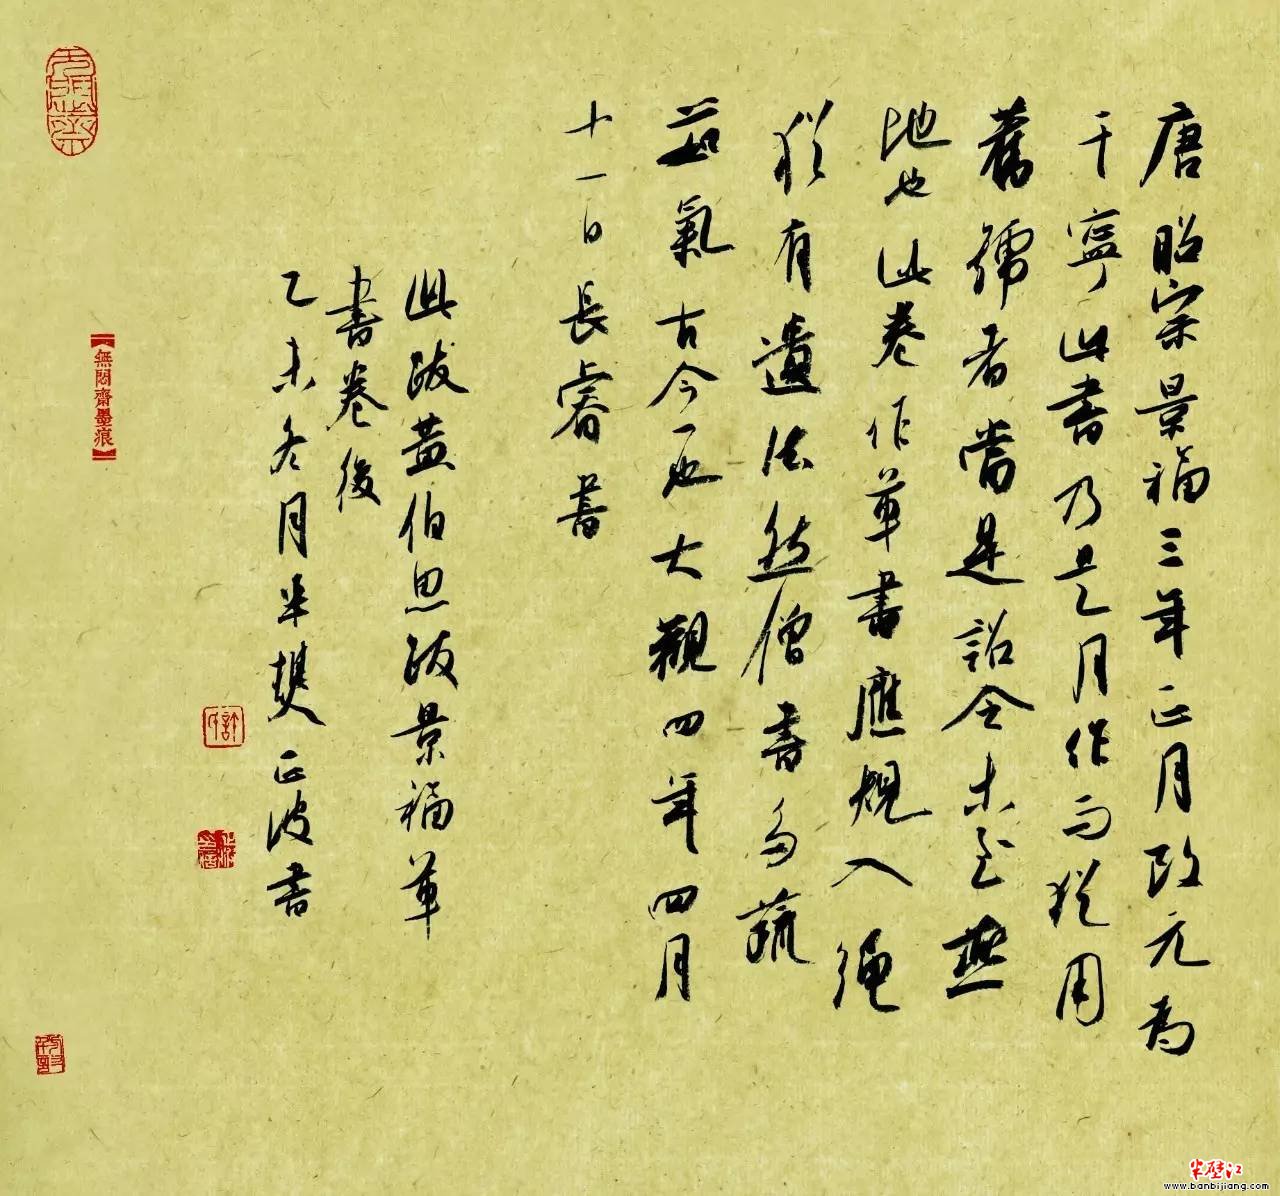 唐昭宗景福三年正月改元為
干寧此書乃是月作而猶用
舊號者當是詔令未至燕
地也此卷作草書應規入繩
猶有遺法然僧書多蔬
茹氣古今一也大觀四年四月
十一日長睿書
此跋蓋伯思跋景福草
書卷後
乙未冬月半樊正波書
【無悶齋墨痕】
半壁江
www.banbijiang.com